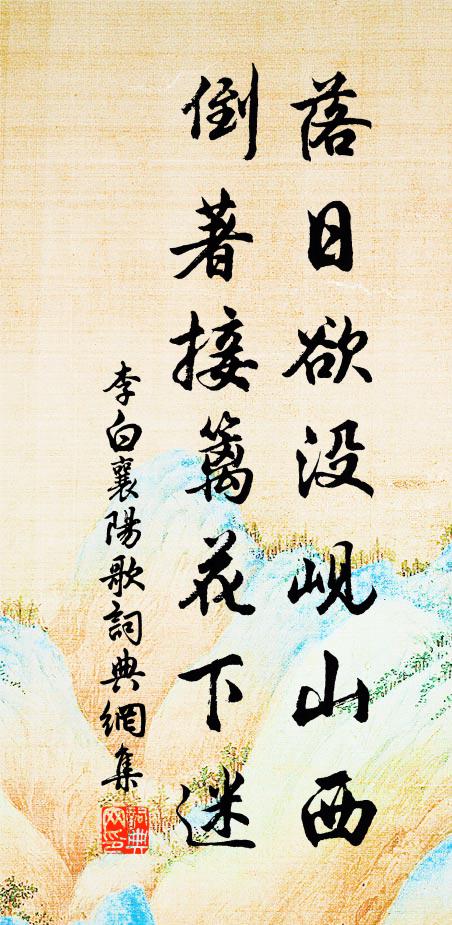 落日欲没岘山西
倒著接篱花下迷
李白襄陽歌詞典網集
詞典网印